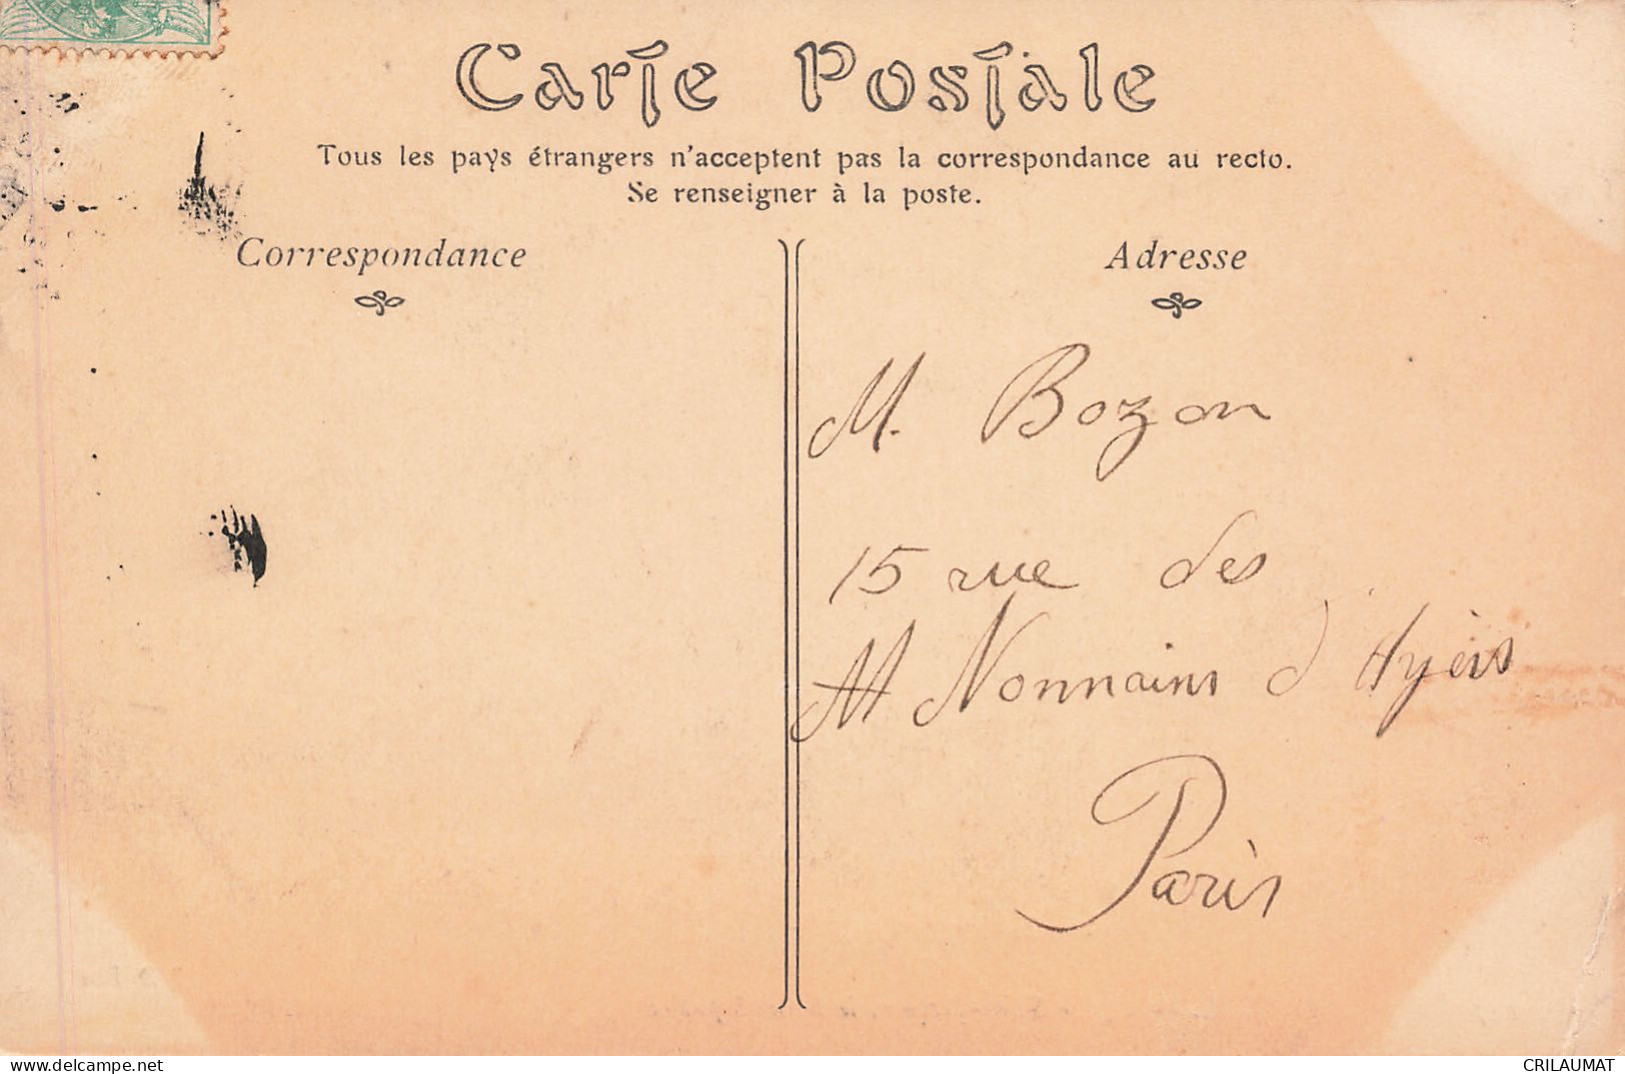 Carte Postale
Tous les pays étrangers n'acceptent pas la correspondance au recto.
Se renseigner à la poste.
Correspondance
Adresse
M. Bozon
15 rue des
Nonnains d'Hyèrs
Paris
delcampe.net
CRILAUMAT